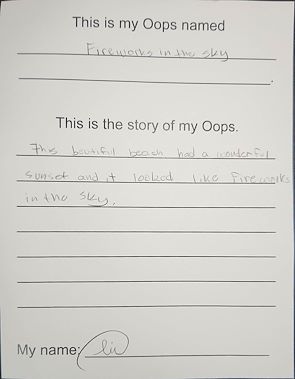 This is my Oops named
Fireworks in the sky
This is the story of my Oops.
This beutiful beach had a wonderful
sunset and it looked like Fireworks
in the sky.
My name: Liv